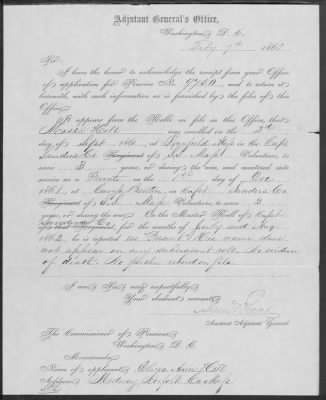 Adjutant General's Office,
Washington, D. C.
July 7th 186
Sir:
I have the honor to acknowledge the receipt from your Office
of application for Pension No. and to return it
herewith, with such information as is furnished by the files of this
Office.
It appears from the Rolls on file in this Office, that
Holt was enrolled on the 2d
day of Sept, 1861, at Lynnfield Mass in the Capt
Sanders Co. Regiment of S.S. Mass Volunteers, to
serve 3 years, or during the war, and mustered into
service as a Private on the 2d day of Dec
1861, at Camp Benton, in Capt Sanders Co.
Regiment of S.S. Mass Volunteers, to serve 3
years, or during the war. On the Muster Roll of Capt
Co. of that Regiment, for the months of July and Aug
1862, he is reported as "Present". His name does
not appear on any subsequent roll. No evidence
of death. No further record on file.
I am Sir, very respectfully,
Your obedient servant,
Assistant Adjutant General.
The Commissioner of Pensions,
Washington, D. C.
Memoranda:
Name of applicant, Eliza Ann Holt
Address, Medway Norfolk Co Mass